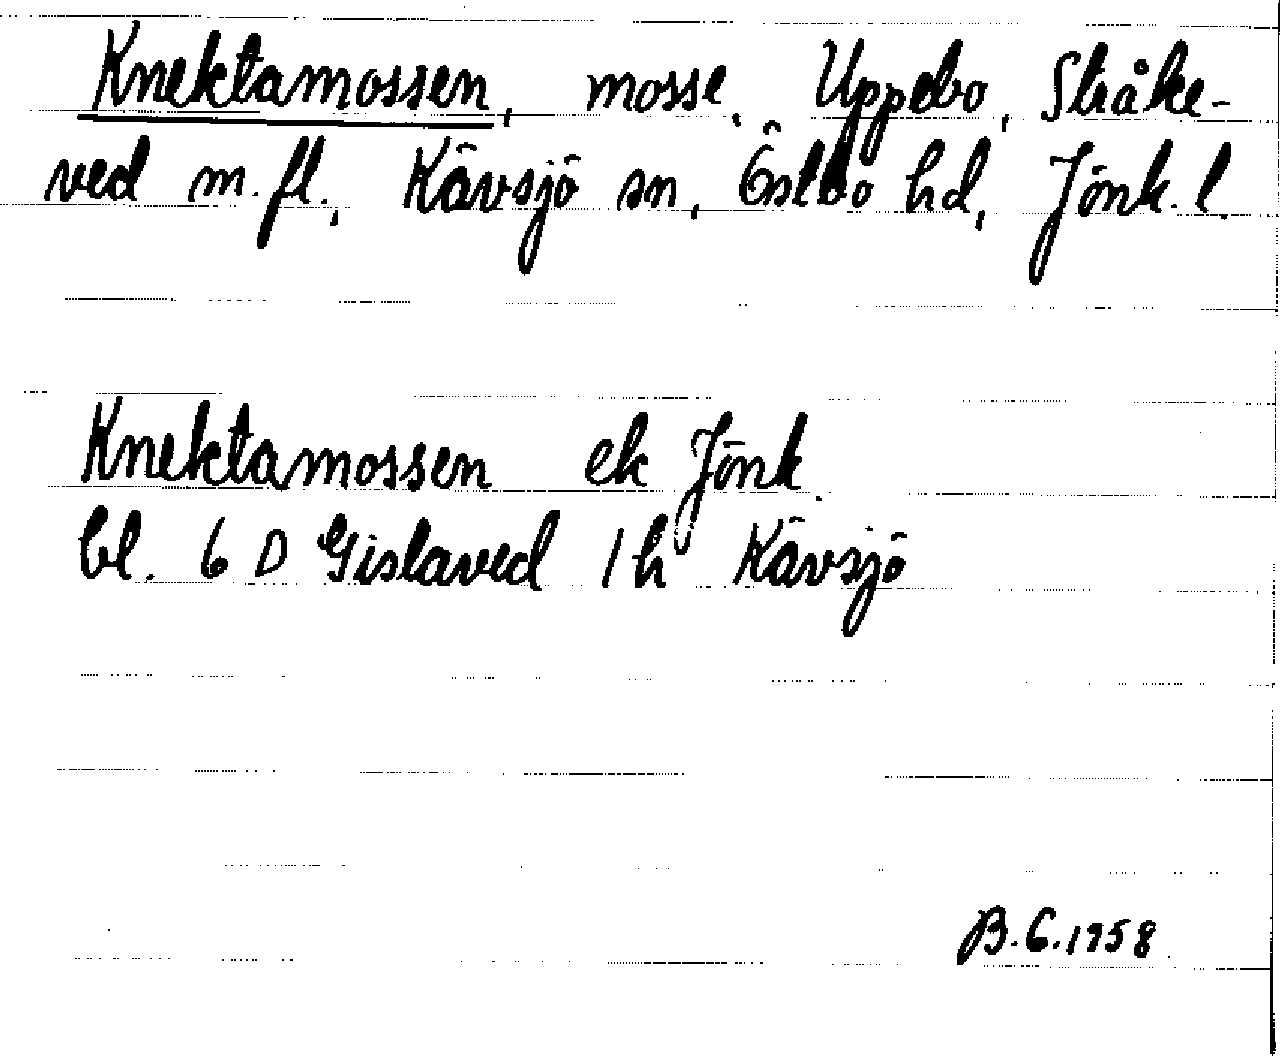 Knektamossen, mosse, Uppebo, Stråke-
ved m.fl., Kävsjö sn, Östbo hd, Jönk. l.
Knektamossen ek Jönk.
bl. 6 D Gislaved 1 h Kävsjö
B.G.1958